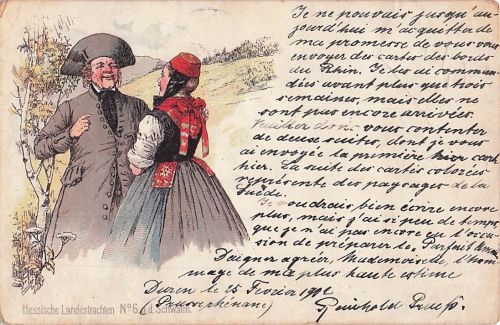 Je ne pouvais jusqu'au-
jourd'hui m'acquitter de
ma promesse de vous
envoyer des cartes des bords
du Rhin. Je les ai comman-
dées avant plus que trois
semaines, mais elles ne
sont pas encore arrivées.
vous contenter
de deux suites, dont je vous
ai envoyé la première hier
hier. La suite des cartes colorées
représente des paysages de la
Suède.
Je voudrais bien écrire encore
plus, mais j'ai si peu de temps,
que je n'ai pas encore eu l'oc-
casion de préparer le
Daignez agréer, Mademoiselle, l'hom-
mage de ma plus haute estime
Duren le 25 Février 1902
Reinhold
Hessische Landestrachten No 6. a.d. Schwalm.